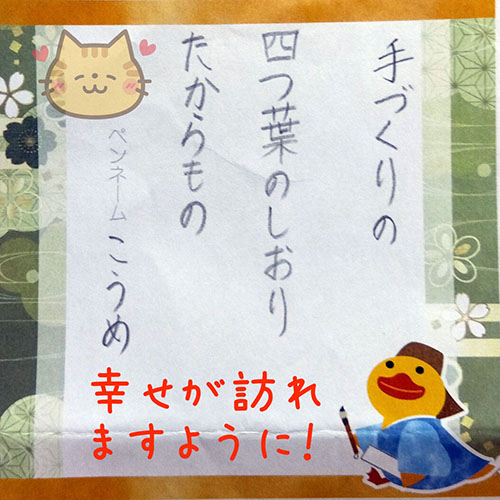 手づくりの
四つ葉のしおり
たからもの
ペンネーム こうめ
幸せが訪れ
ますように!